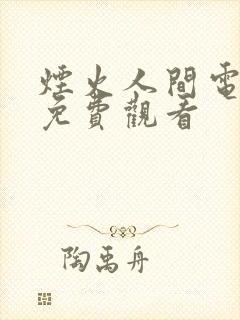 煙火人間電
免費觀看
陶禹舟